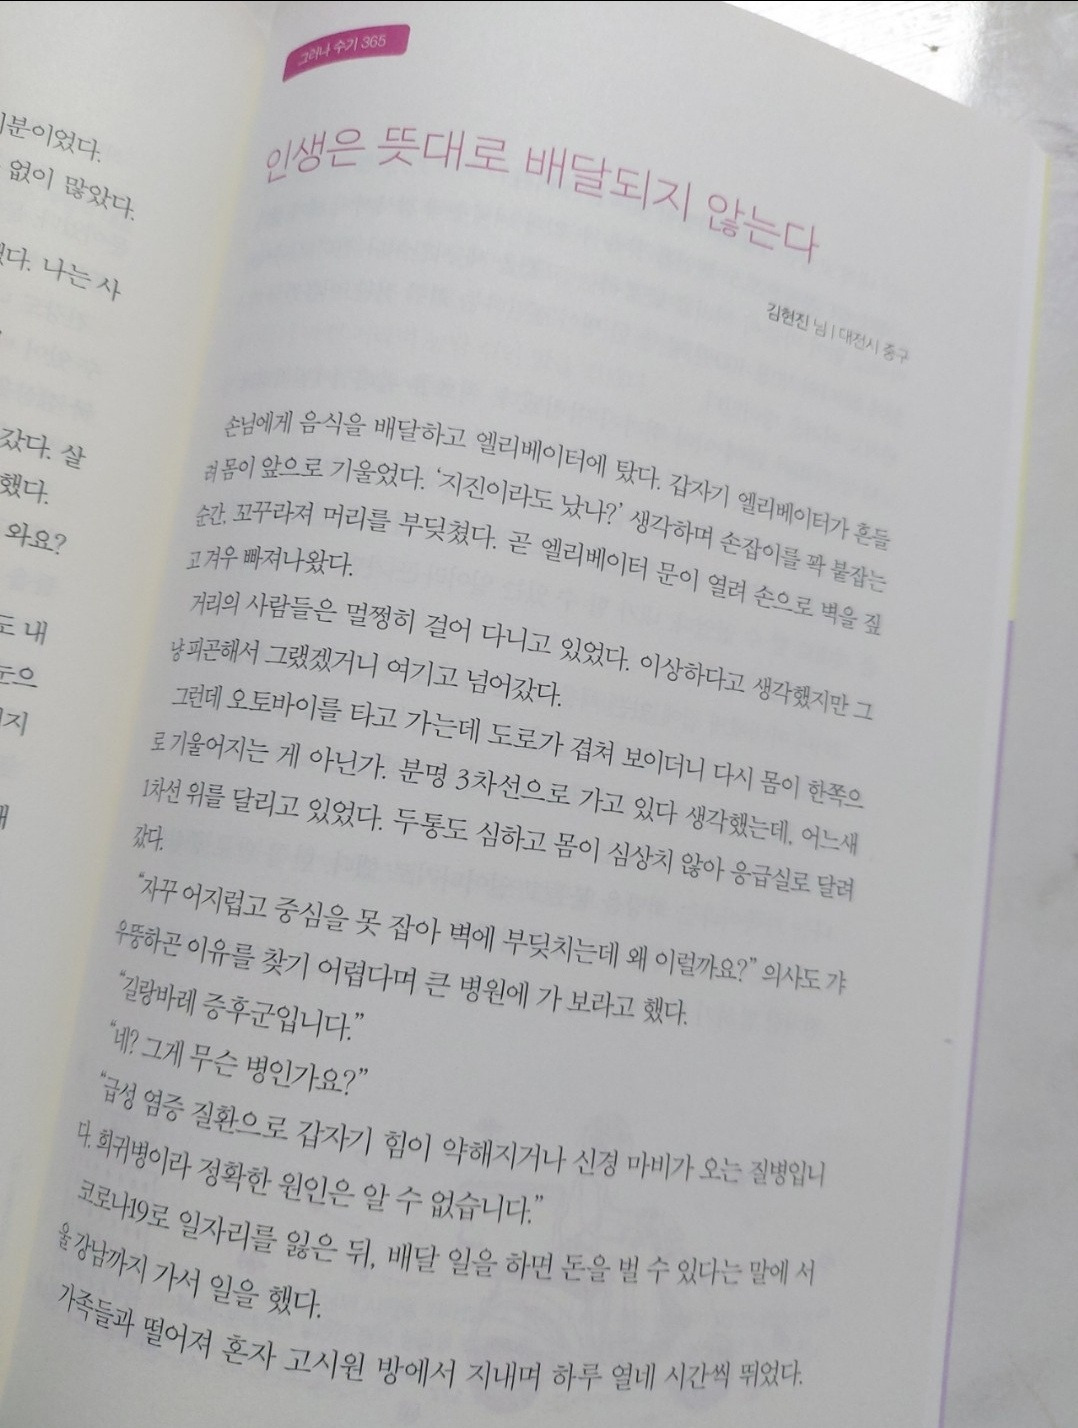 그러나 수기 365
인생은 뜻대로 배달되지 않는다
김현진 님 | 대전시 중구
손님에게 음식을 배달하고 엘리베이터에 탔다. 갑자기 엘리베이터가 흔들
려 몸이 앞으로 기울었다. ‘지진이라도 났나?’ 생각하며 손잡이를 꽉 붙잡는
순간, 꼬꾸라져 머리를 부딪쳤다. 곧 엘리베이터 문이 열려 손으로 벽을 짚
고 겨우 빠져나왔다.
거리의 사람들은 멀쩡히 걸어 다니고 있었다. 이상하다고 생각했지만 그
냥 피곤해서 그랬겠거니 여기고 넘어갔다.
그런데 오토바이를 타고 가는데 도로가 겹쳐 보이더니 다시 몸이 한쪽으
로 기울어지는 게 아닌가. 분명 3차선으로 가고 있다 생각했는데, 어느새
1차선 위를 달리고 있었다. 두통도 심하고 몸이 심상치 않아 응급실로 달려
갔다.
“자꾸 어지럽고 중심을 못 잡아 벽에 부딪치는데 왜 이럴까요?” 의사도 갸
우뚱하곤 이유를 찾기 어렵다며 큰 병원에 가 보라고 했다.
“길랑바레 증후군입니다.”
“네? 그게 무슨 병인가요?”
“급성 염증 질환으로 갑자기 힘이 약해지거나 신경 마비가 오는 질병입니
다. 희귀병이라 정확한 원인은 알 수 없습니다.”
코로나19로 일자리를 잃은 뒤, 배달 일을 하면 돈을 벌 수 있다는 말에 서
울 강남까지 가서 일을 했다.
가족들과 떨어져 혼자 고시원 방에서 지내며 하루 열네 시간씩 뛰었다.
분이었다.
없이 많았다.
다. 나는 사
갔다. 살
했다.
와요?
도 내
눈으
지